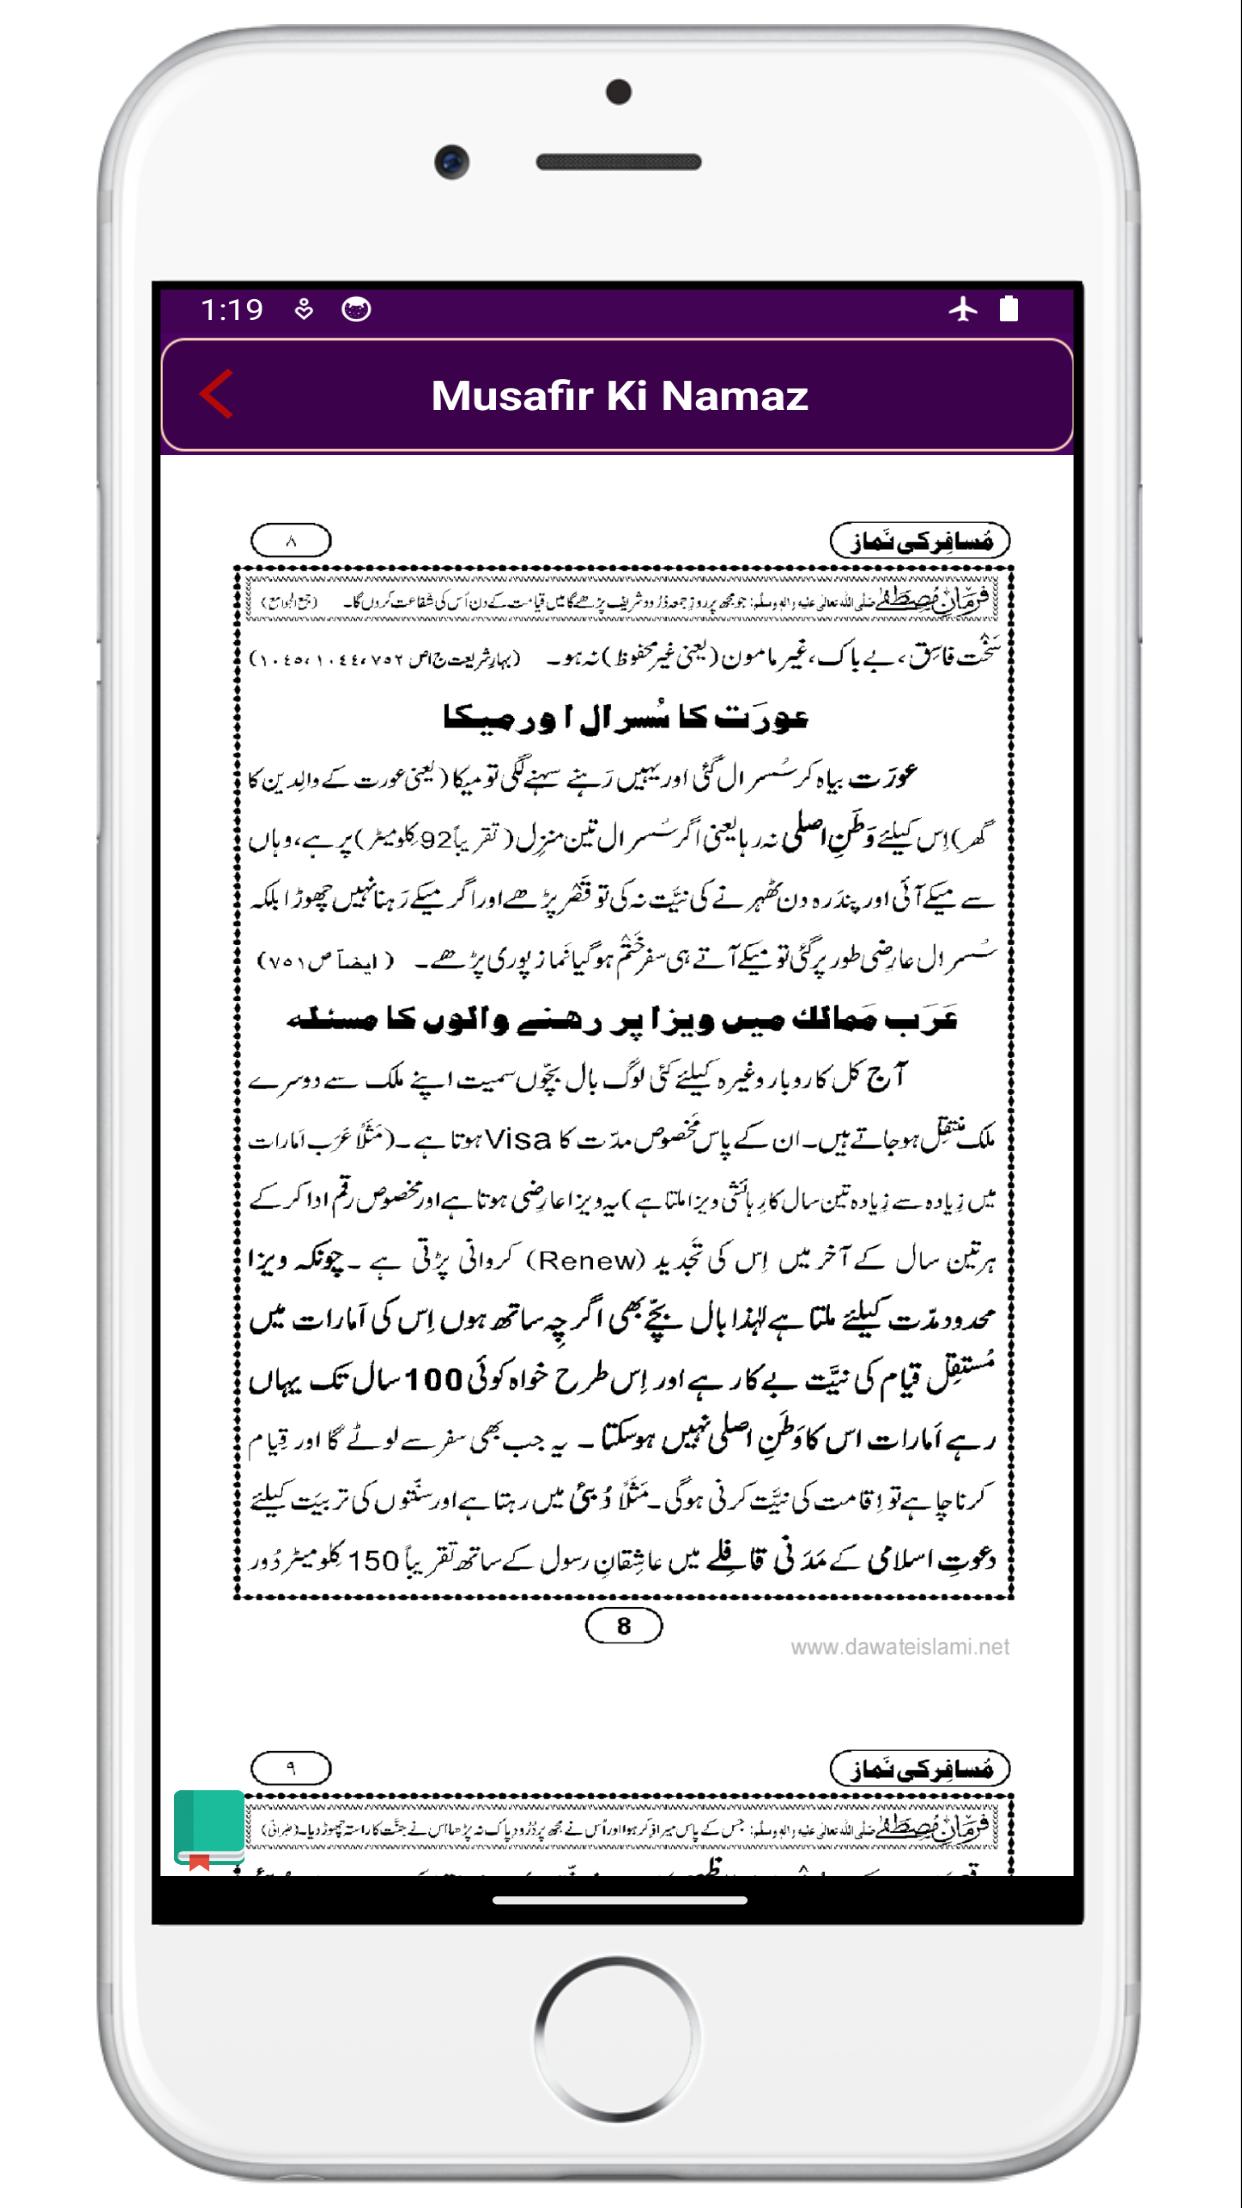 1:19
Musafir Ki Namaz
مُسافِر کی نَماز
۸
فرمانِ مُصطَفٰے صلی اللہ تعالیٰ علیہ والہٖ وسلم: جو مجھ پر روزِ جمعہ دُرُود شریف پڑھے گا میں قیامت کے دن اُس کی شفاعت کروں گا۔ (جمع الجوامع)
سَخْت فاسِق، بے باک، غیر مامون (یعنی غیر محفوظ) نہ ہو۔ (بہارِ شریعت ج۱ص ۷۵۲، ۱۰٤٤، ۱۰٤۵)
عورَت کا سُسرال اور میکا
عورَت بیاہ کر سُسرال گئی اور یہیں رَہنے سہنے لگی تو میکا (یعنی عورت کے والِدین کا
گھر) اِس کیلئے وَطَنِ اصلی نہ رہا یعنی اگر سُسرال تین منزِل (تقریباً 92 کِلومیٹر) پر ہے، وہاں
سے میکے آئی اور پندَرہ دن ٹھہرنے کی نیَّت نہ کی تو قَصْر پڑھے اور اگر میکے رَہنا نہیں چھوڑا بلکہ
سُسرال عارِضی طور پر گئی تو میکے آتے ہی سفر خَتْم ہو گیا نَماز پوری پڑھے۔ (ایضاً ص۷۵۱)
عَرَب مَمالک میں ویزا پر رھنے والوں کا مسئلہ
آج کل کاروبار وغیرہ کیلئے کئی لوگ بال بچّوں سمیت اپنے ملک سے دوسرے
ملک منتقِل ہو جاتے ہیں۔ ان کے پاس مَخصوص مدّت کا Visa ہوتا ہے۔ (مَثَلاً عَرَب اَمارات
میں زِیادہ سے زِیادہ تین سال کا رِہائشی ویزا ملتا ہے) یہ ویزا عارِضی ہوتا ہے اور مخصوص رقم ادا کر کے
ہر تین سال کے آخر میں اِس کی تَجدید (Renew) کروانی پڑتی ہے۔ چونکہ ویزا
محدود مدّت کیلئے ملتا ہے لہٰذا بال بچّے بھی اگرچِہ ساتھ ہوں اِس کی اَمارات میں
مُستقِل قِیام کی نیَّت بے کار ہے اور اِس طرح خواہ کوئی 100 سال تک یہاں
رہے اَمارات اس کا وَطَنِ اصلی نہیں ہو سکتا۔ یہ جب بھی سفر سے لوٹے گا اور قِیام
کرنا چاہے تو اِقامت کی نیَّت کرنی ہو گی۔ مَثَلاً دُبئی میں رہتا ہے اور سنّتوں کی تربیَت کیلئے
دعوتِ اسلامی کے مَدَنی قافِلے میں عاشِقانِ رسول کے ساتھ تقریباً 150 کِلومیٹر دُور
8
www.dawateislami.net
مُسافِر کی نَماز
۹
فرمانِ مُصطَفٰے صلی اللہ تعالیٰ علیہ والہٖ وسلم: جس کے پاس میرا ذِکر ہوا اور اُس نے مجھ پر دُرُودِ پاک نہ پڑھا اس نے جنّت کا راستہ چھوڑ دیا۔ (طبرانی)